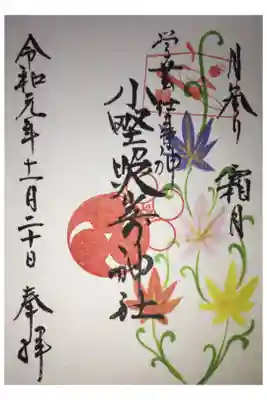 月参り
霜月
学芸仕事の神
小野照崎神社
令和元年十一月二十日
奉拝